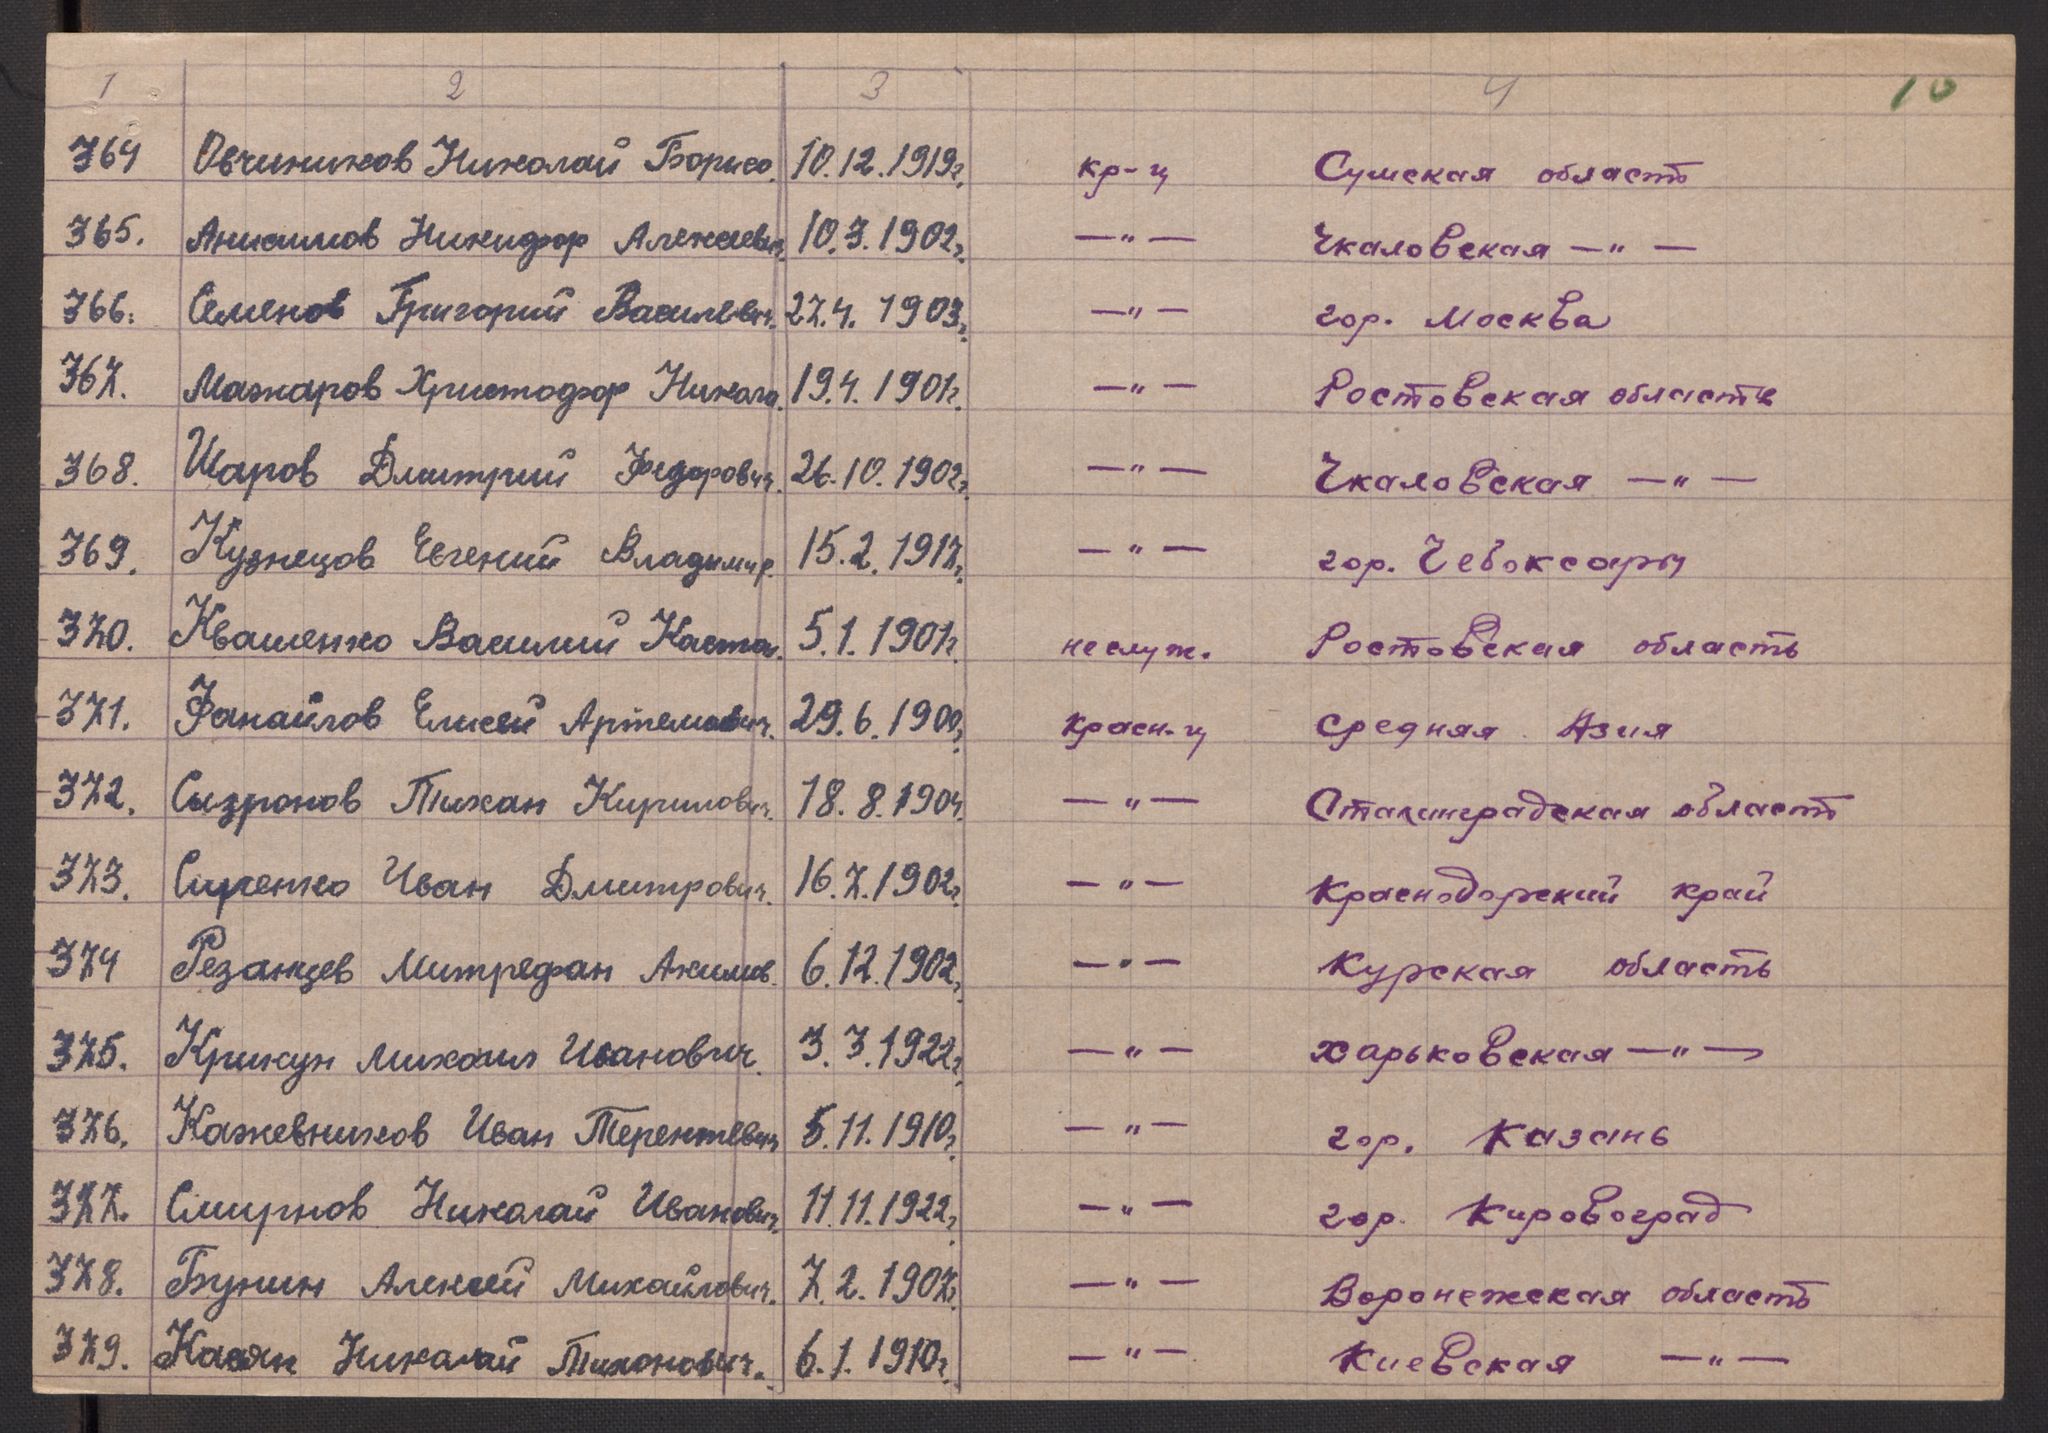 1 2 3 4 10
364 Овчиников Николай Борисо. 10.12.1919г. кр-ц Сумская область
365. Анисимов Никифор Алексеевич. 10.3.1902г. —"— Чкаловская —"—
366. Семенов Григорий Василевич. 27.4.1903г. —"— гор. Москва
367. Мажаров Христофор Никола. 19.4.1901г. —"— Ростовская область
368. Шаров Дмитрий Федорович. 26.10.1902г. —"— Чкаловская —"—
369. Кузнецов Евгений Владимир. 15.2.1917г. —"— гор. Чебоксары
370. Квашенко Василий 5.1.1901г. неслуж. Ростовская область
371. Фанайлов Елисей Артемович. 29.6.1900г. красн-ц Средняя Азия
372. Сызронов Тихан Кирилович. 18.8.1904. —"— Сталинградская область
373. Сиренко Иван Дмитрович. 16.7.1902г. —"— Краснодорский край
374 Резанцев Митрефан Акимов. 6.12.1902г. —"— Курская область
375. Крикун Михаил Иванович. 3.3.1922г. —"— Харьковская —"—
376. Кажевников Иван Терентевич 5.11.1910г. —"— гор. Казань
377. Смирнов Николай Иванович. 11.11.1922г. —"— гор. Кировоград
378. Бунин Алексей Михайлович. 7.2.1907г. —"— Воронежская область
379. Касян Николай Тихонович. 6.1.1910г. —"— Киевская —"—